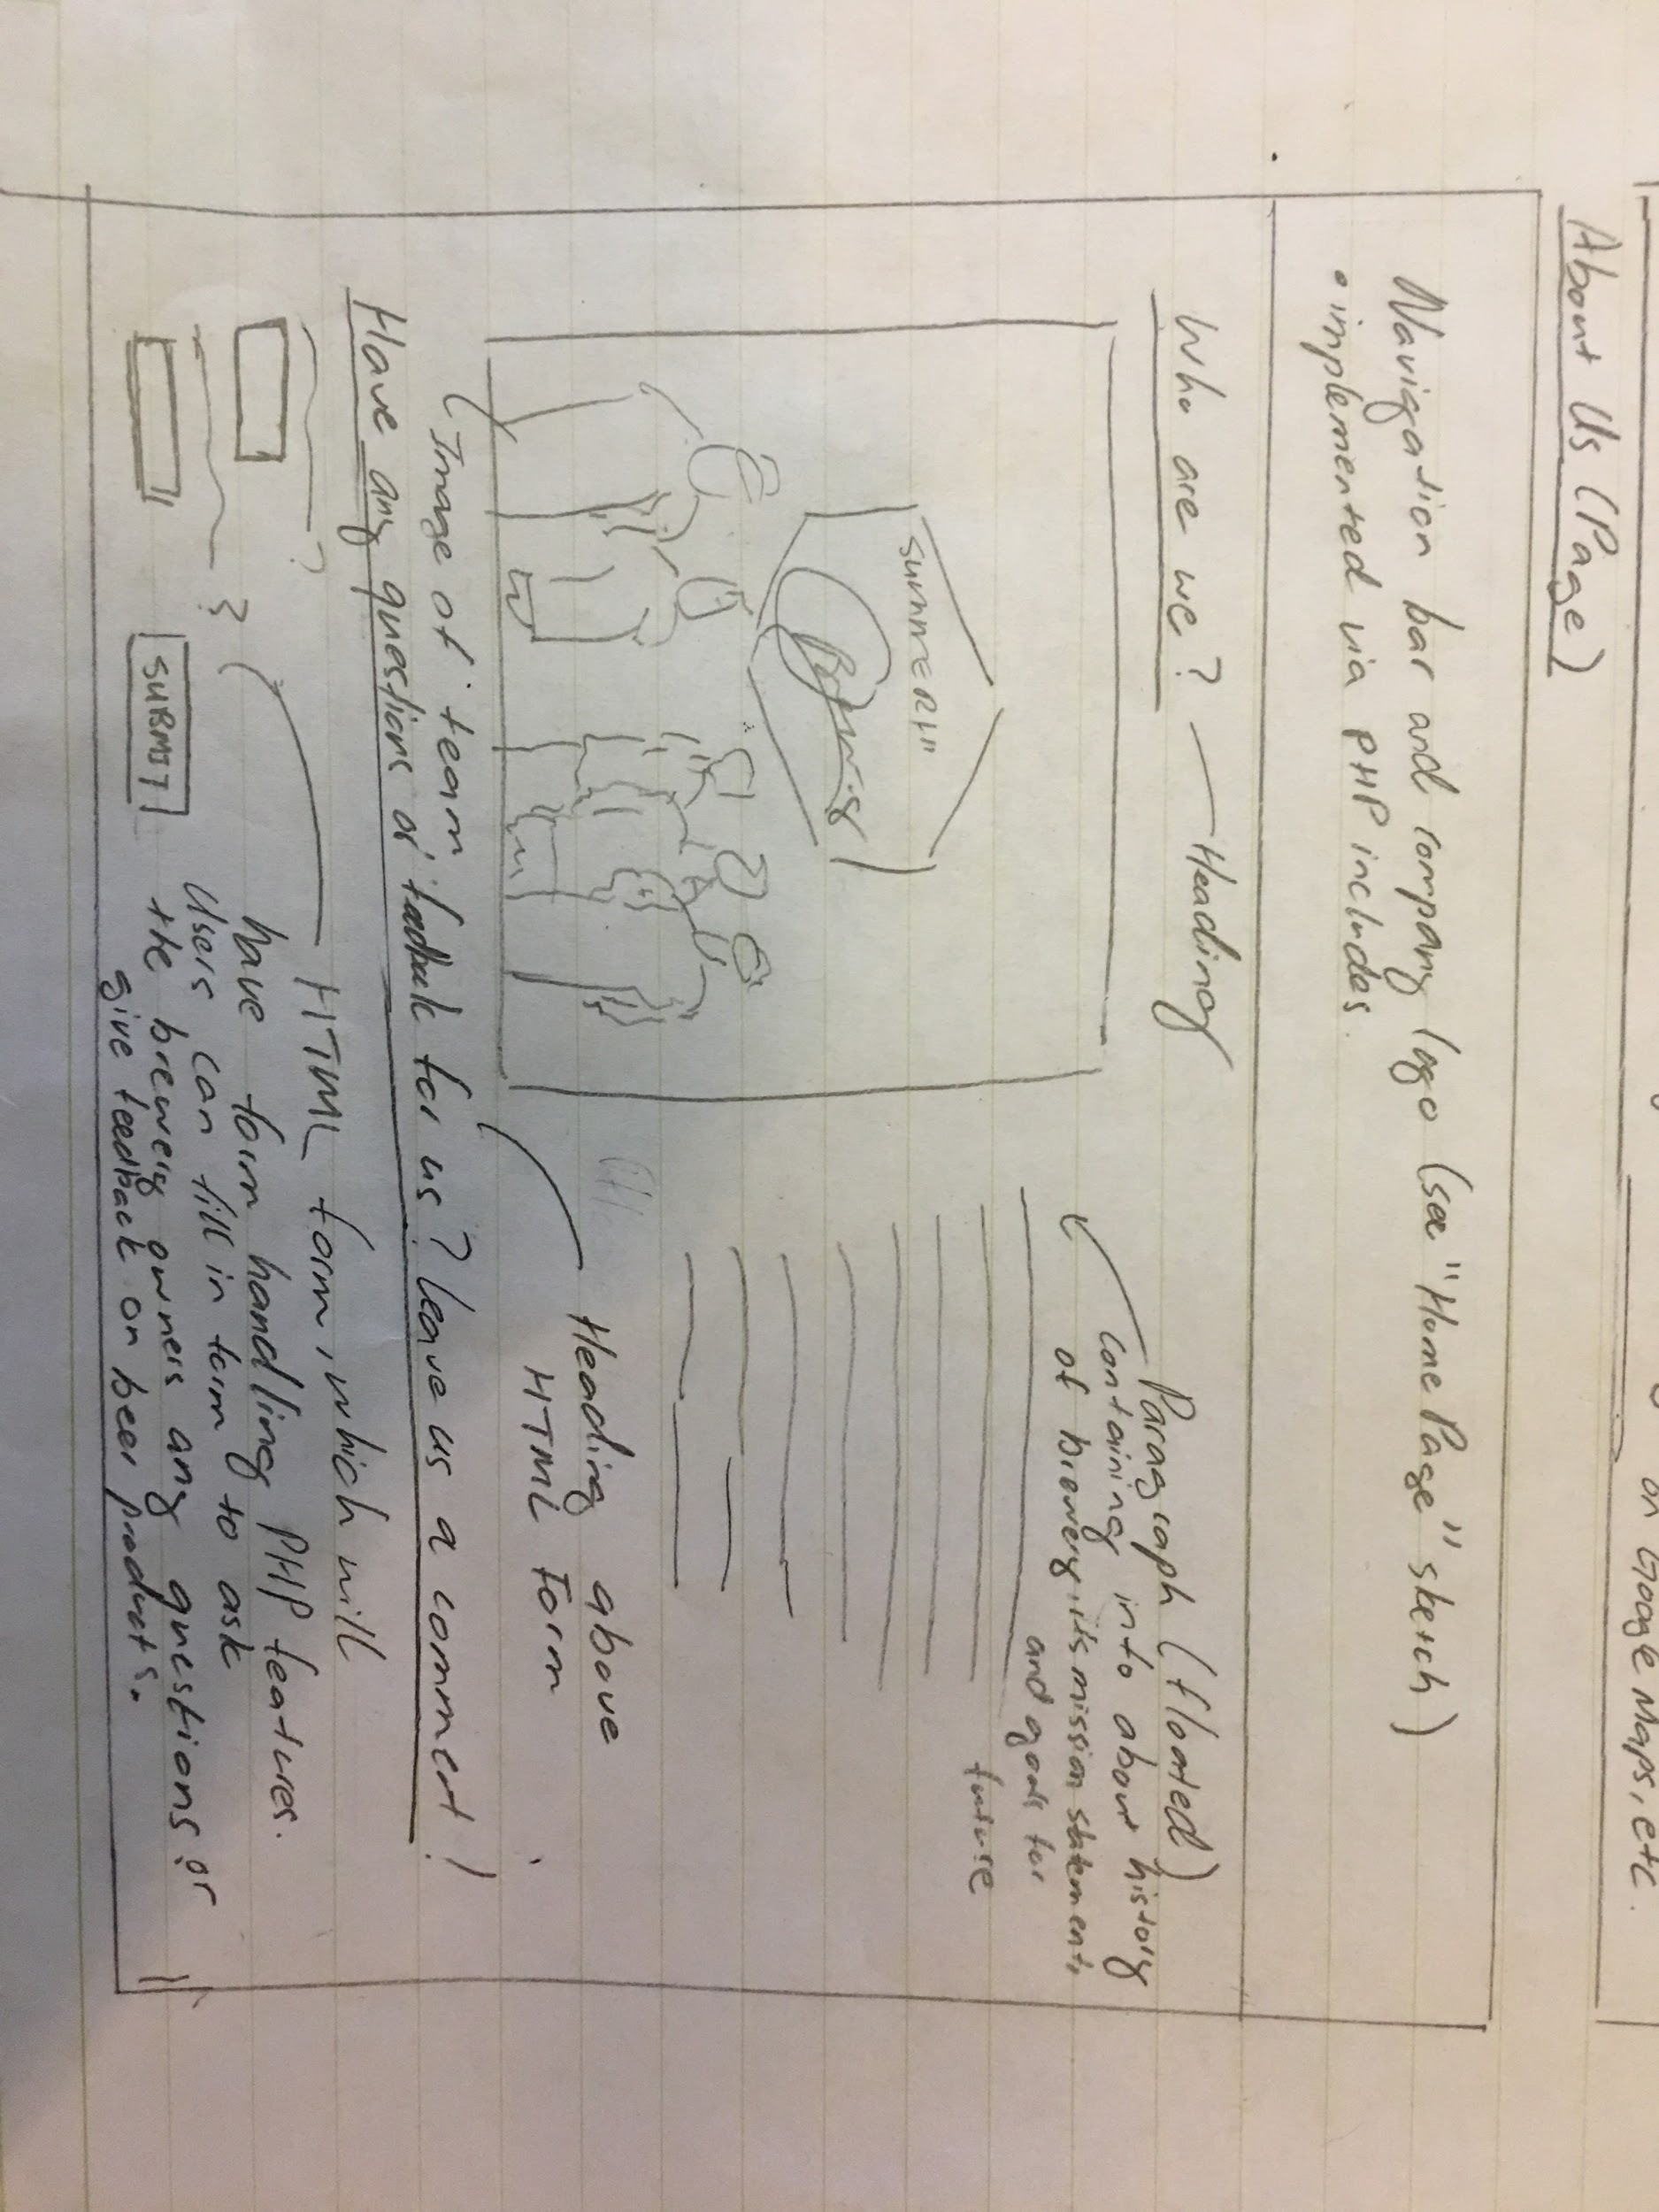 on Google Maps, etc.
About Us (Page)
Navigation bar and company logo (see "Home Page" sketch)
• implemented via PHP includes.
Who are we? — Heading
Paragraph (floated)
containing info about history
of brewery, its mission statement,
and goals for
future
SUMMERH
Heading above
HTML Form
(Image of team
Have any questions or feedback for us? Leave us a comment!
?
HTML form, which will
have form handling PHP features.
Users can fill in form to ask
the brewery owners any questions or
give feedback on beer products.
SUBMIT